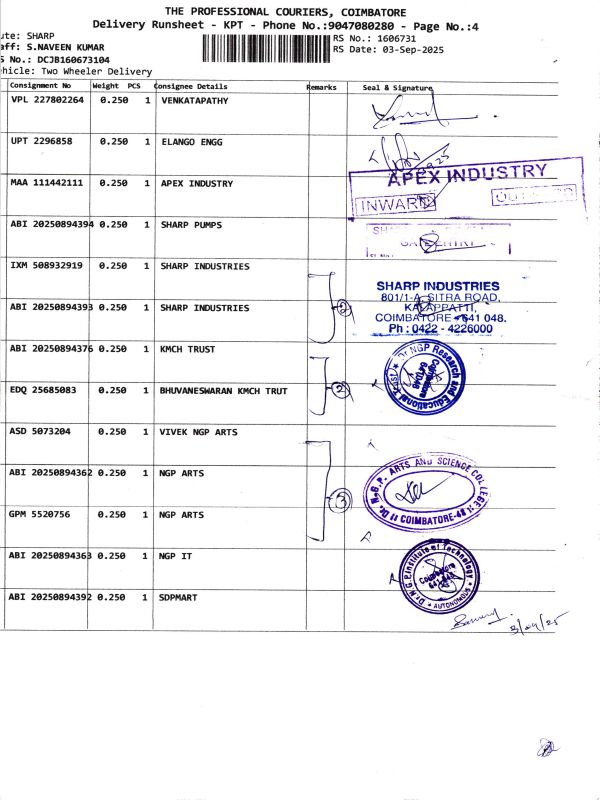 THE PROFESSIONAL COURIERS, COIMBATORE
Delivery Runsheet - KPT - Phone No.:9047080280 - Page No.:4
ute: SHARP
aff: S.NAVEEN KUMAR
S No.: DCJB160673104
hicle: Two Wheeler Delivery
RS No.: 1606731
RS Date: 03-Sep-2025
Consignment No Weight PCS Consignee Details Remarks Seal & Signature
VPL 227802264 0.250 1 VENKATAPATHY
UPT 2296858 0.250 1 ELANGO ENGG
MAA 111442111 0.250 1 APEX INDUSTRY
APEX INDUSTRY
INWARD
ABI 20250894394 0.250 1 SHARP PUMPS
IXM 508932919 0.250 1 SHARP INDUSTRIES
ABI 20250894393 0.250 1 SHARP INDUSTRIES
2
SHARP INDUSTRIES
801/1-A, SITRA ROAD,
KALAPPATTI,
COIMBATORE - 641 048.
Ph : 0422 - 4226000
ABI 20250894376 0.250 1 KMCH TRUST
EDQ 25685083 0.250 1 BHUVANESWARAN KMCH TRUT
2
Dr NGP Research and Educational Trust
Coimbatore
641048
ASD 5073204 0.250 1 VIVEK NGP ARTS
ABI 20250894362 0.250 1 NGP ARTS
GPM 5520756 0.250 1 NGP ARTS
3
Dr. N.G.P. ARTS AND SCIENCE COLLEGE
COIMBATORE-48
ABI 20250894363 0.250 1 NGP IT
Dr. N.G.P. Institute of Technology
Coimbatore
641 048
AUTONOMOUS
ABI 20250894392 0.250 1 SDPMART
3/09/25